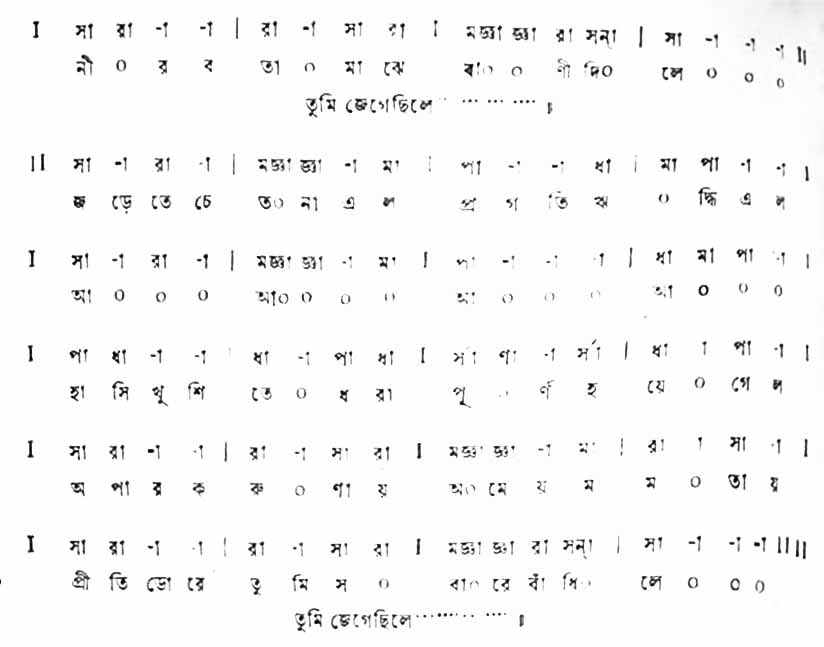 I সা রা -া -া | রা -া সা রা I মজ্ঞা জ্ঞা রা সন্‌া | সা -া -া -া II
নী ০ র ব তা ০ মা ঝে বা০ ০ ণী দি০ লে ০ ০ ০
তুমি জেগেছিলে·· ··· ··· ···· ॥
II সা -া রা -া | মজ্ঞা জ্ঞা -া মা | পা -া -া ধা | মা পা -া -া I
জ ড়ে তে চে ত০ না এ ল প্র গ তি ঋ ০ দ্ধি এ ল
I সা -া রা -া | মজ্ঞা জ্ঞা -া মা I পা -া -া -া | ধা মা পা -া I
আ ০ ০ ০ আ০ ০ ০ ০ আ ০ ০ ০ আ ০ ০ ০
I পা ধা -া -া | ধা -া পা ধা I র্সা ণা -া র্সা | ধা া পা -া I
হা সি খু শি তে ০ ধ রা পূ ০ র্ণ হ য়ে ০ গে ল
I সা রা -া -া | রা -া সা রা I মজ্ঞা জ্ঞা -া মা | রা া সা -া I
অ পা র ক রু ০ ণা য় অ০ মে য় ম ম ০ তা য়
I সা রা -া -া | রা -া সা রা I মজ্ঞা জ্ঞা রা সন্‌া | সা -া -া -া II II
প্রী তি ডো রে তু মি স ০ বা০ রে বাঁ ধি০ লে ০ ০ ০
তুমি জেগেছিলে········ ···· ॥